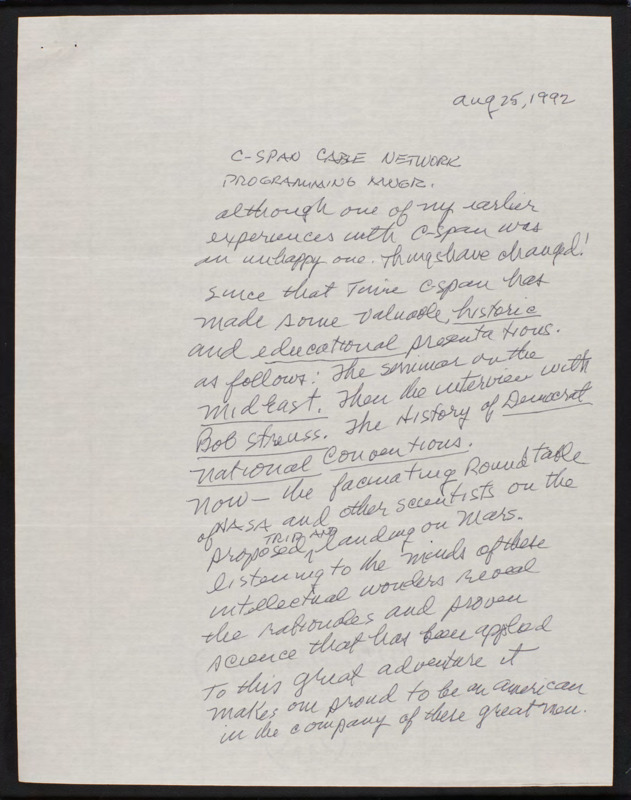 Aug 25, 1992
C-SPAN CABLE NETWORK
PROGRAMMING MNGR.
Although one of my earlier
experiences with C-Span was
an unhappy one. Things have changed!
Since that Time Cspan has
made some valuable, historic
and educational presentations.
as follows: The seminar on the
MidEast. Then the interview with
Bob Strauss. The History of Democrat
National Conventions.
Now — the facinating Roundtable
of NASA and other scientists on the
proposed TRIP AND landing on Mars.
listening to the minds of these
intellectual wonders reveal
the rationales and proven
science that has been applied
To this great adventure it
makes one proud to be an American
in the company of these great men.